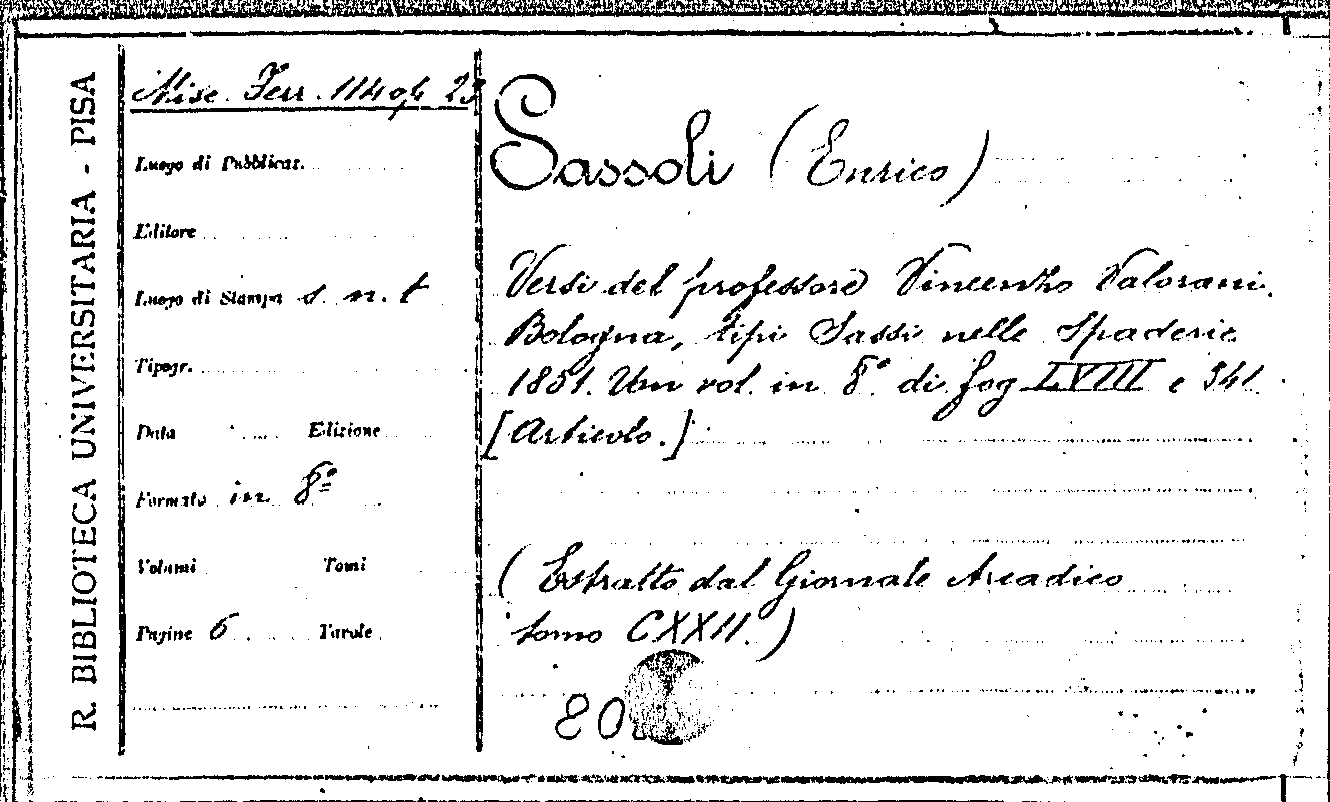 R. BIBLIOTECA UNIVERSITARIA - PISA
Misc. Ferr. 114 23
Luogo di Pubblicaz.
Editore
Luogo di Stampa s. n. t
Tipogr.
Data Edizione
Formato in 8°
Volumi Tomi
Pagine 6 Tavole
Sassoli (Enrico)
Versi del professore Vincenzo Valorani.
Bologna, tipi Sassi nelle Spaderie
1851. Un vol. in 8° di fog LVIII e 341.
[Articolo.]
(Estratto dal Giornale Arcadico
tomo CXXII.)
80